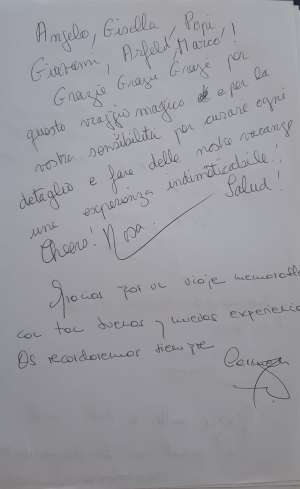 Angelo, Gisella, Popi
Giovanni, Marco!!
Grazie Grazie Grazie per
questo viaggio magico e per la
vostra sensibilità per curare ogni
detaglio e fare delle nostre vacanze
una esperienza indimenticabile!
Cheers! Rosa. Salud!
Gracias por un viaje memorable
con tan buenas y nuevas experiencias
Os recordaremos siempre
Carmen